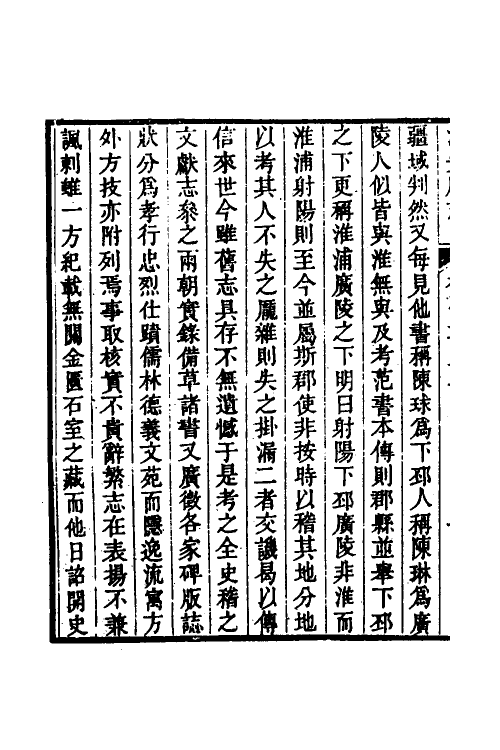 疆域判然又每見他書稱陳球爲下邳人稱陳琳爲廣
陵人似皆與淮無與及考范書本傳則郡縣並舉下邳
之下更稱淮浦廣陵之下明曰射陽下邳廣陵非淮而
淮浦射陽則至今並屬斯郡使非按時以稽其地分地
以考其人不失之厖雜則失之掛漏二者交譏曷以傳
信來世今雖舊志具存不無遺憾于是考之全史稽之
文獻志參之兩朝實錄備草諸書又廣徵各家碑版誌
狀分爲孝行忠烈仕蹟儒林德義文苑而隱逸流寓方
外方技亦附列焉事取核實不貴辭繁志在表揚不兼
諷刺雖一方紀載無關金匱石室之藏而他日詔開史